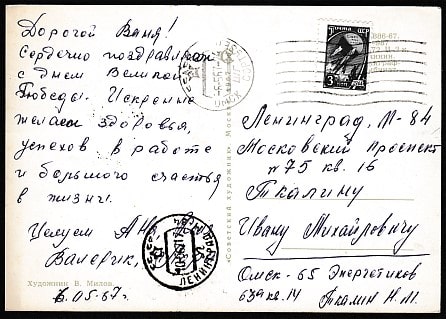 Дорогой Ваня!
Сердечно поздравляем
с днем Великой
Победы. Искренне
желаем здоровья,
успехов в работе
и большого счастья
в жизни.
Целуем
Валерик,
6.05-67г.
Художник В. Милов
«Советский художник» Москва
ПОЧТА СССР
3
ОМСК
ЛЕНИНГРАД
Ленинград, М-84,
Московский проспект
№75 кв. 16
Ткалину
Ивану Михайровичу
Омск-65 Энергетиков
63а кв. 14 Ткалин Н.М.